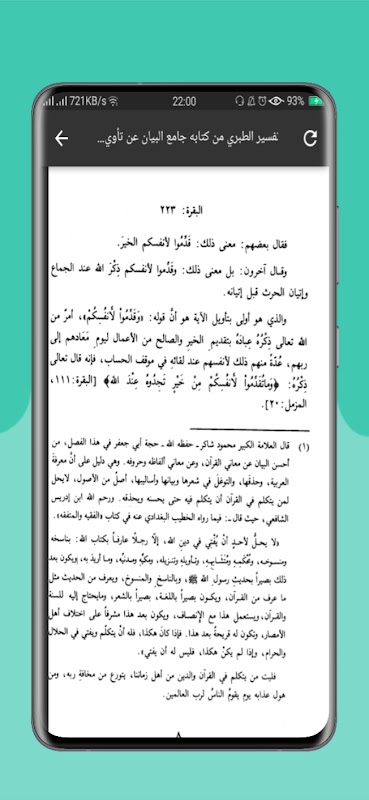 721KB/s
22:00
93%
تفسير الطبري من كتابه جامع البيان عن تأوي...
البقرة: ٢٢٣
فقال بعضهم: معنى ذلك: قَدِّمُوا لأنفسكم الخيرَ.
وقـال آخرون: بل معنى ذلك: وقَدِّموا لأنفسكم ذِكْرَ الله عند الجماع
وإتيان الحرث قبل إتيانه.
والذي هو أولى بتأويل الآية هو أنَّ قوله: «وَقَدِّمُواْ لأَنفُسِكُمْ»، أمرٌ من
الله تعالى ذِكْرُهُ عبادَهُ بتقديم الخير والصالح من الأعمال ليوم مَعَادهم إلى
ربهم، عُدَّةً منهم ذلك لأنفسهم عند لقائه في موقف الحساب، فإنه قال تعالى
ذِكْرُهُ: ﴿وَمَاتُقَدِّمُواْ لأَنفُسِكُمْ مِنْ خَيْرٍ تَجِدُوهُ عِنْدَ الله﴾ [البقرة: ١١١،
المزمل: ٢٠].
(١) قال العلامة الكبير محمود شاكر- حفظه الله-: حجة أبي جعفر في هذا الفصل، من
أحسن البيان عن معاني القرآن، وعن معاني ألفاظه وحروفه. وهي دليل على أنَّ معرفةَ
العربية، وحذقَها، والتوغلَ في شعرها وبيانها وأساليبها، أصلٌ من الأصول، لايحل
لمن يتكلم في القرآن أن يتكلم فيه حتى يحسنه ويحذقه. ورحم الله ابن إدريس
الشافعي، حيث قال-: فيما رواه الخطيب البغدادي عنه في كتاب «الفقيه والمتفقه».
«لا يحـلُّ لأحـدٍ أنْ يُفْتِي في دينِ الله، إلّا رجـلًا عارفـاً بكتاب الله: بناسخه
ومنسوخـه، وبمُحْكَمِهِ ومُتَشابِهِـهِ، وتـأويلهِ وتنـزيله، ومكيِّهِ ومـدنيِّه، وما أريدَ به، ويكون بعد
ذلك بصيراً بحديثِ رسولِ الله ﷺ، وبالناسخ والمنسوخ، ويعرف من الحديث مثل
ما عرف من القـرآن، ويكـون بصيراً باللغـة، بصيراً بالشعر، ومايحتاج إليه للسنة
والقـرآن، ويستعمل هذا مع الإنصاف، ويكون بعد هذا مشرفاً على اختلاف أهل
الأمصار، وتكون له قريحةٌ بعد هذا. فإذا كانَ هكذا، فله أنْ يتكلَّم ويفتي في الحلال
والحرام، وإذا لم يكنْ هكذا، فليس له أن يفتي».
فليت من يتكلم في القرآن والدين من أهل زماننا، يتورع من مخافةِ ربه، ومن
هول عذابه يوم يقومُ الناسُ لرب العالمين.